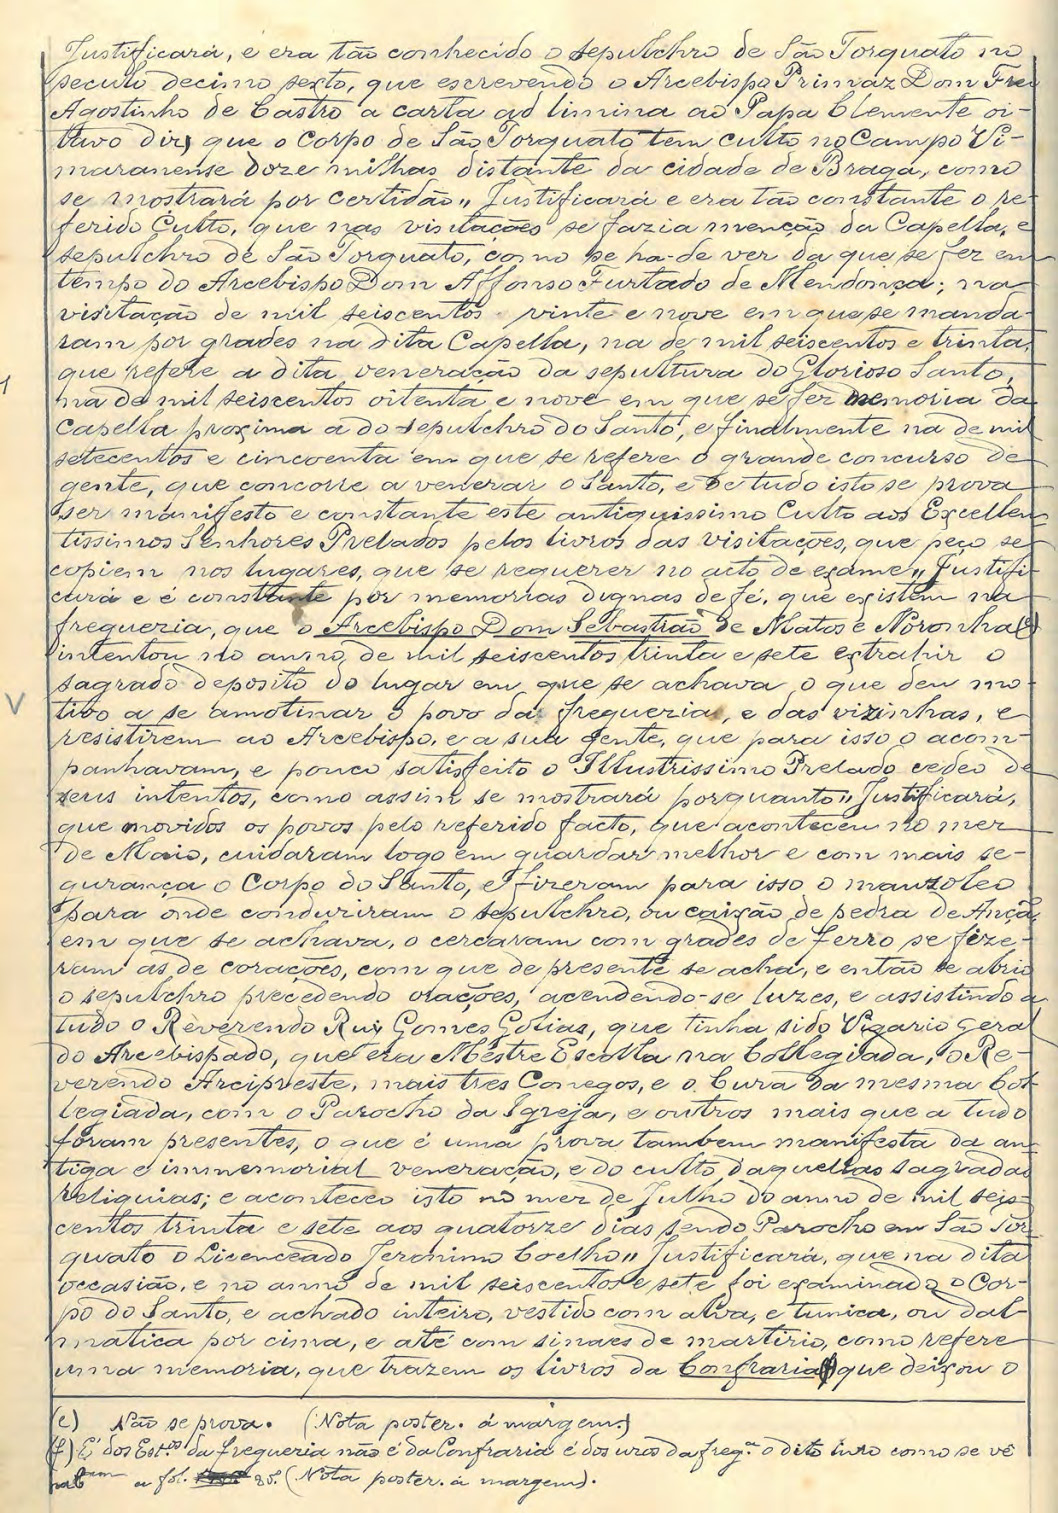 Justificará, e era tão conhecido o sepulchro de São Torquato no
seculo decimo sexto, que escrevendo o Arcebispo Primaz Dom Frei
Agostinho de Castro a carta ad limina ao Papa Clemente oi-
tavo diz, que o Corpo de São Torquato tem culto no Campo Vi-
maranense doze milhas distante da cidade de Braga, como
se mostrará por certidão,, Justificará e era tão constante o re-
ferido Culto, que nas visitações se fazia menção da Capella, e
sepulchro de São Torquato, como se ha-de ver da que se fez em
tempo do Arcebispo Dom Affonso Furtado de Mendonça; na
visitação de mil seiscentos vinte e nove em que se manda-
ram por grades na dita Capella, na de mil seiscentos e trinta,
que refere a dita veneração da sepultura do Glorioso Santo,
na de mil seiscentos oitenta e nove em que se fez memoria da
Capella proxima á do sepulchro do Santo, e finalmente na de mil
setecentos e cincoenta em que se refere o grande concurso de
gente, que concorre a venerar o Santo, e de tudo isto se prova
ser manifesto e constante este antiquissimo Culto aos Excellen
tissimos Senhores Prelados pelos livros das visitações, que peço se
copiem nos lugares, que se requerer no acto de exame,, Justifi-
cará e é constante por memorias dignas de fé, que existem na
freguezia, que o Arcebispo Dom Sebastrão de Matos e Noronha (e)
intentou no anno de mil seiscentos trinta e sete extrahir o
sagrado deposito do lugar em que se achava o que deu mo-
tivo a se amotinar o povo da freguezia, e das vizinhas, e
resistirem ao Arcebispo, e a sua gente, que para isso o acom-
panhavam, e pouco satisfeito o Illustrissimo Prelado cedeo de
seus intentos, como assim se mostrará porquanto,, Justificará,
que movidos os povos pelo referido facto, que aconteceu no mez
de Maio, cuidaram logo em guardar melhor e com mais se-
gurança o Corpo do Santo, e fizeram para isso o mauzoleo
para onde conduziram o sepulchro, ou caixão de pedra de Ançã,
em que se achava, o cercaram com grades de ferro se fize-
ram as de corações, com que de presente se acha, e então se abrio
o sepulchro precedendo orações, acendendo-se luzes, e assistindo a
tudo o Reverendo Rui Gomes Golias, que tinha sido Vigario geral
do Arcebispado, que era Mestre Escolla na Collegiada, o Re-
verendo Arcipreste, mais tres Conegos, e o Cura da mesma Col
legiada, com o Parocho da Igreja, e outros mais que a tudo
foram presentes, o que é uma prova tambem manifesta da an-
tiga e immemorial veneração, e do culto daquellas sagradas
reliquias; e aconteceo isto no mez de Julho do anno de mil seis-
centos trinta e sete aos quatorze dias sendo Parocho em São Tor-
quato o Licenceado Jeronimo Coelho,, Justificará, que na dita
occasião, e no anno de mil seiscentos e sete foi examinado o Cor-
po do Santo, e achado inteiro, vestido com alva, e tunica, ou dal-
matica por cima, e até com sinaes de martirio, como refere
uma memoria, que trazem os livros da Confraria (f) que deixou o
(e) Não se prova. (Nota poster. á margem)
(f) É dos Est.os da freguezia não é da Confraria é dos uzos da freg.a o dito livro como se vê
a fol. 80. (Nota poster. á margem).